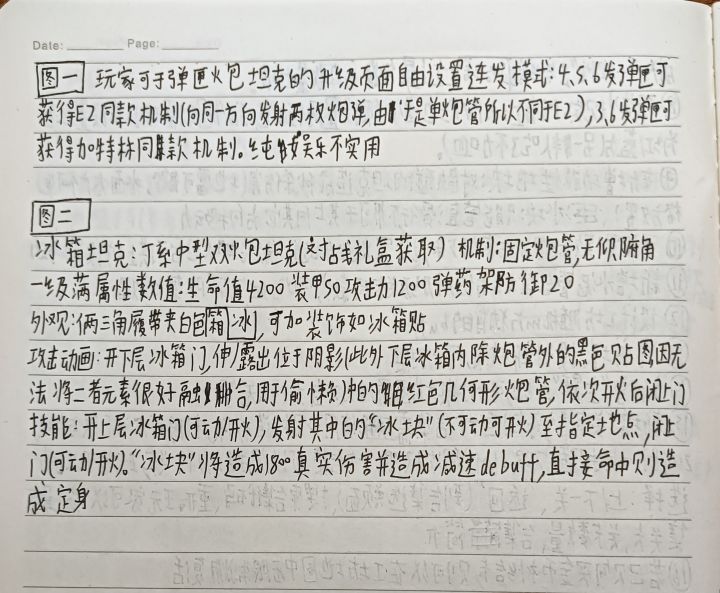 Date: Page:
图一 玩家可于弹匣火包坦克的升级页面自由设置连发模式:4,5,6发弹匣可
获得E2同款机制(向同一方向发射两枚炮弹,由于是单炮管所以不同于E2),3,6发弹匣可
获得加特林同款机制。纯娱乐不实用
图二
冰箱坦克:丁系中型双火包坦克(对战礼盒获取) 机制:固定炮管,无仰俯角
一级满属性数值:生命值4200 装甲50 攻击力1200 弹药架防御20
外观:俩三角履带夹白色箱冰,可加装饰如冰箱贴
攻击动画:开下层冰箱门,伸/露出位于阴影(此外下层冰箱内除炮管外的黑色贴图因无
法将二者元素很好融合,用于偷懒)中的粗红色几何形炮管,依次开火后闭上门
技能:开上层冰箱门(可动/开火),发射其中的“冰块”(不可动可开火)至指定地点,闭上
门(可动/开火)。“冰块”将造成1800真实伤害并造成减速debuff,直接命中则造
成定身